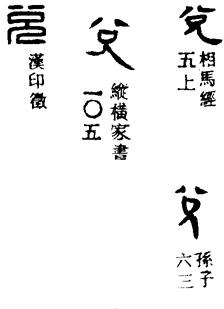 相馬經
五上
孫子
六三
縱橫家書
一〇五
漢印徵